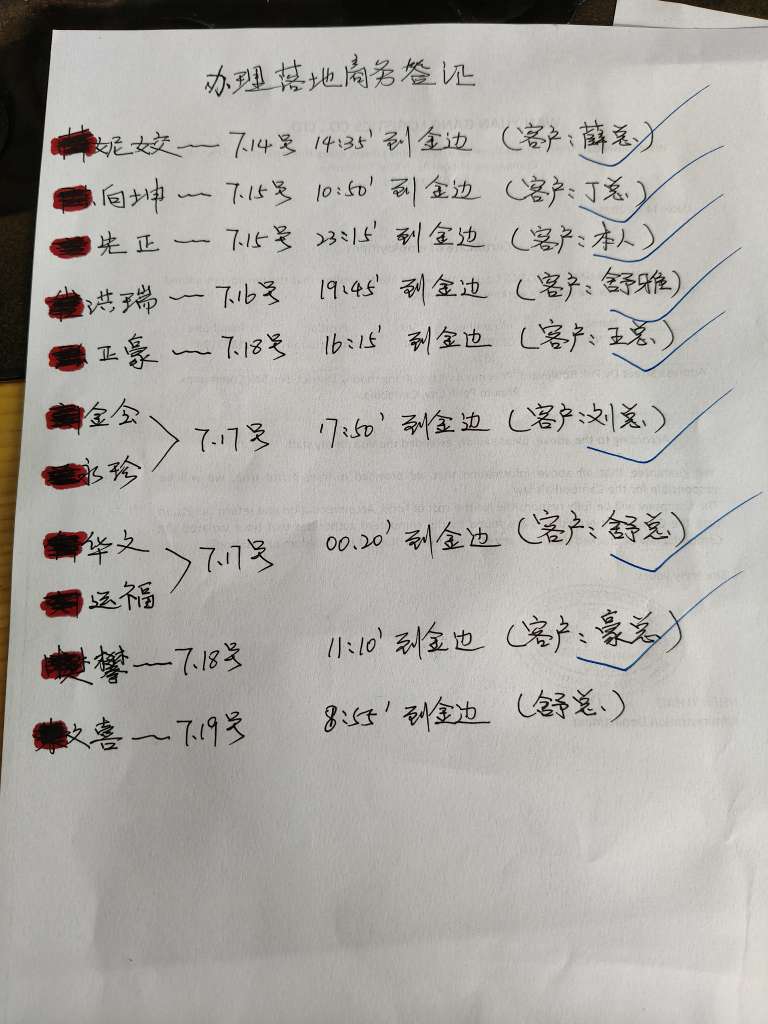 办理落地商务签证
妮姣 — 7.14号 14:35' 到金边 (客户:薛总)
向坤 — 7.15号 10:50' 到金边 (客户:丁总)
先正 — 7.15号 23:15' 到金边 (客户:本人)
洪瑞 — 7.16号 19:45' 到金边 (客户:舒雅)
正豪 — 7.18号 16:15' 到金边 (客户:王总)
金公
永珍
7.17号 17:50' 到金边 (客户:刘总)
华文
运福
7.17号 00.20' 到金边 (客户:舒总)
攀 — 7.18号 11:10' 到金边 (客户:豪总)
文喜 — 7.19号 8:55' 到金边 (舒总)